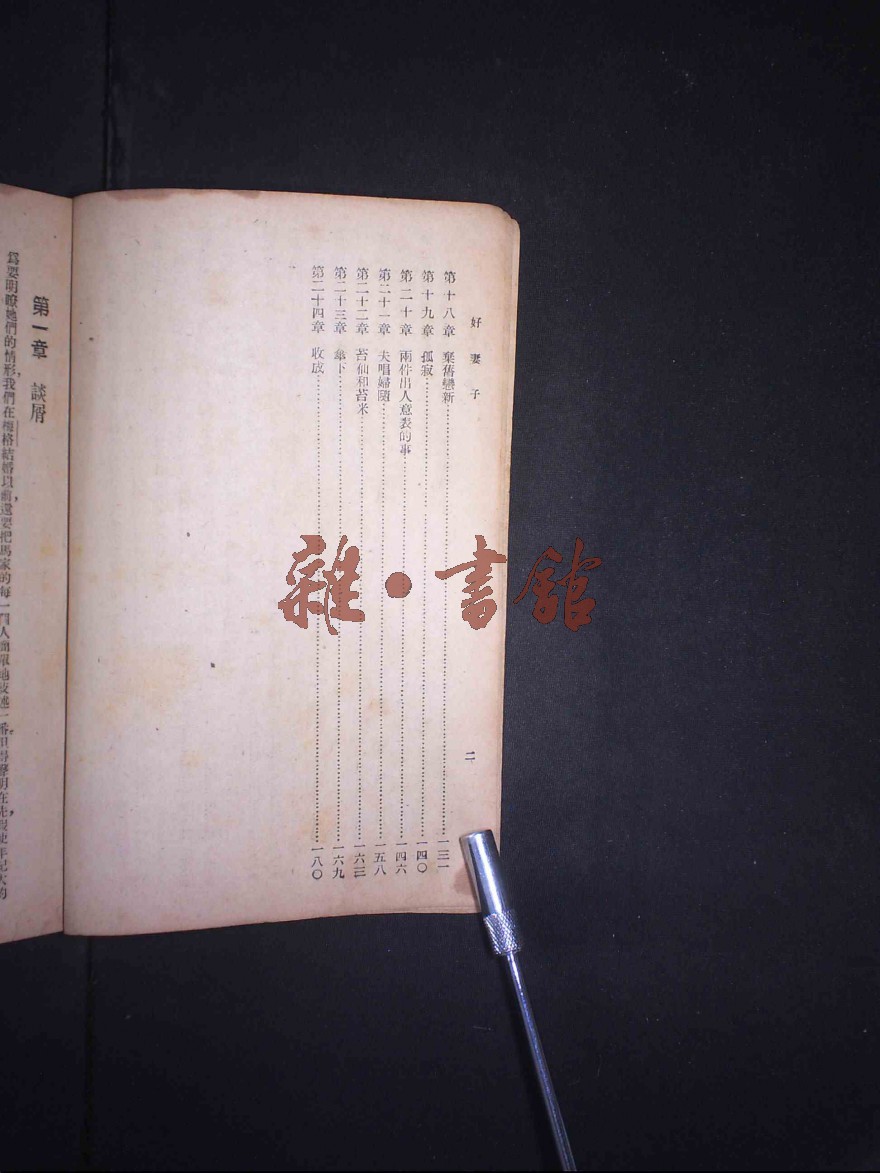 好妻子
二
第十八章 棄舊戀新……一三一
第十九章 孤寂……一四〇
第二十章 兩件出人意表的事……一四六
第二十一章 夫唱婦隨……一五八
第二十二章 苔仙和苔米……一六三
第二十三章 傘下……一六九
第二十四章 收成……一八〇
第一章 談屑
爲要明瞭她們的情形，我們在梅格結婚以前，還要把馬家的每一個人簡單地敍述一番。但得聲明在先，假使年紀大的
雜·書館